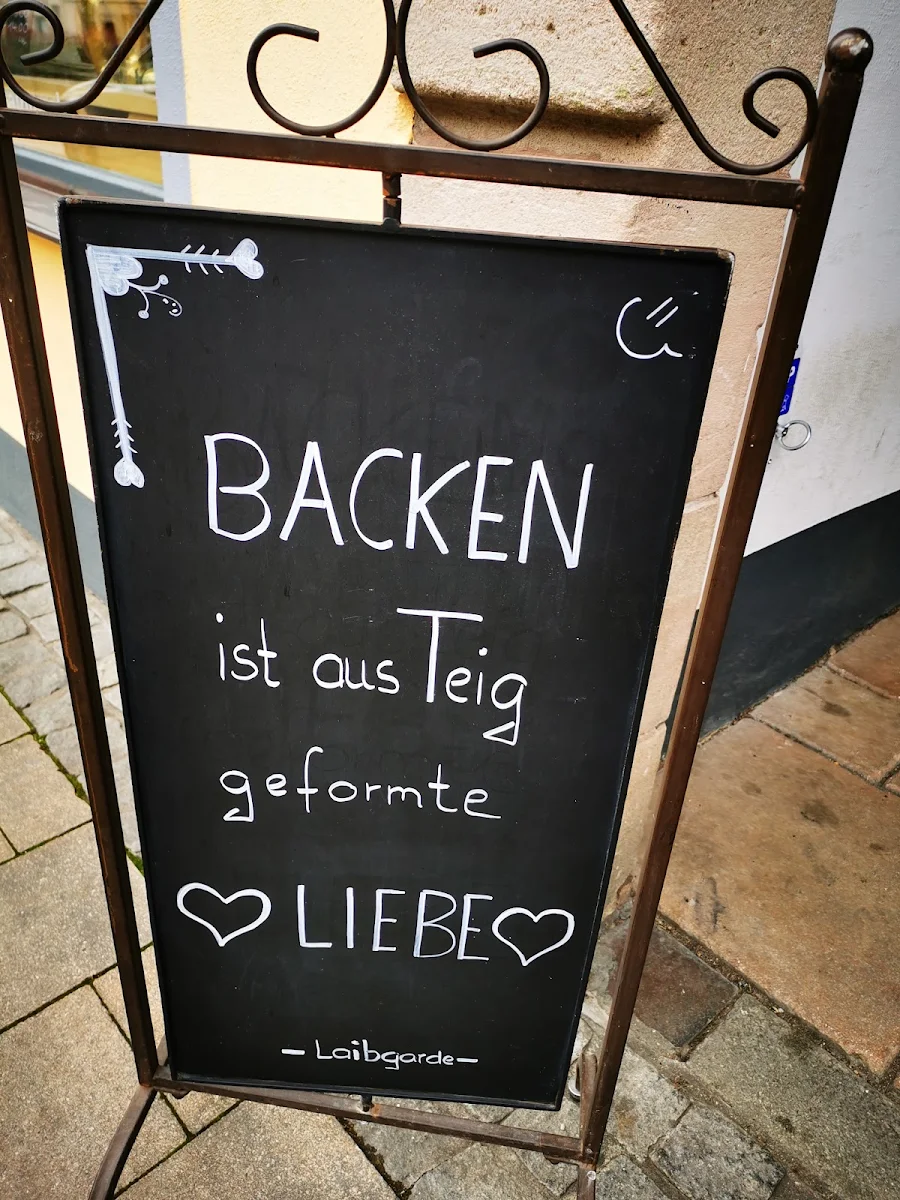 BACKEN
ist aus Teig
geformte
LIEBE
- Laibgarde -